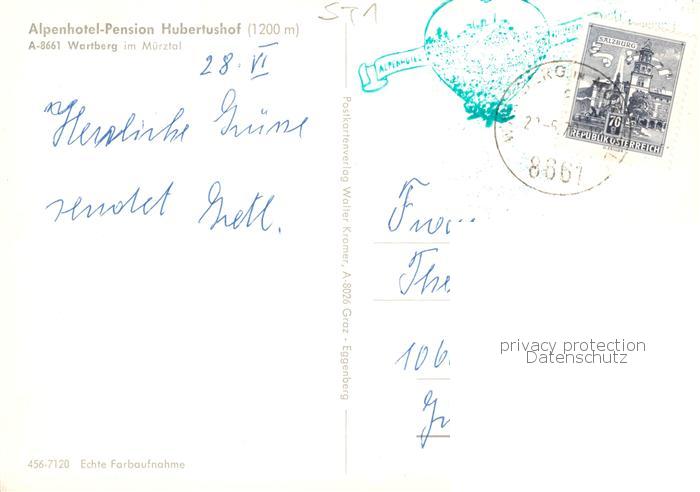 ST1
Alpenhotel-Pension Hubertushof (1200 m)
A-8661 Wartberg im Mürztal
28. VI
Herzliche Grüsse
sendet Gretl.
Postkartenverlag Walter Kramer, A-8026 Graz - Eggenberg
456-7120 Echte Farbaufnahme
ALPENHOTEL
SALZBURG
70
REPUBLIK ÖSTERREICH
8661
The
106
privacy protection
Datenschutz